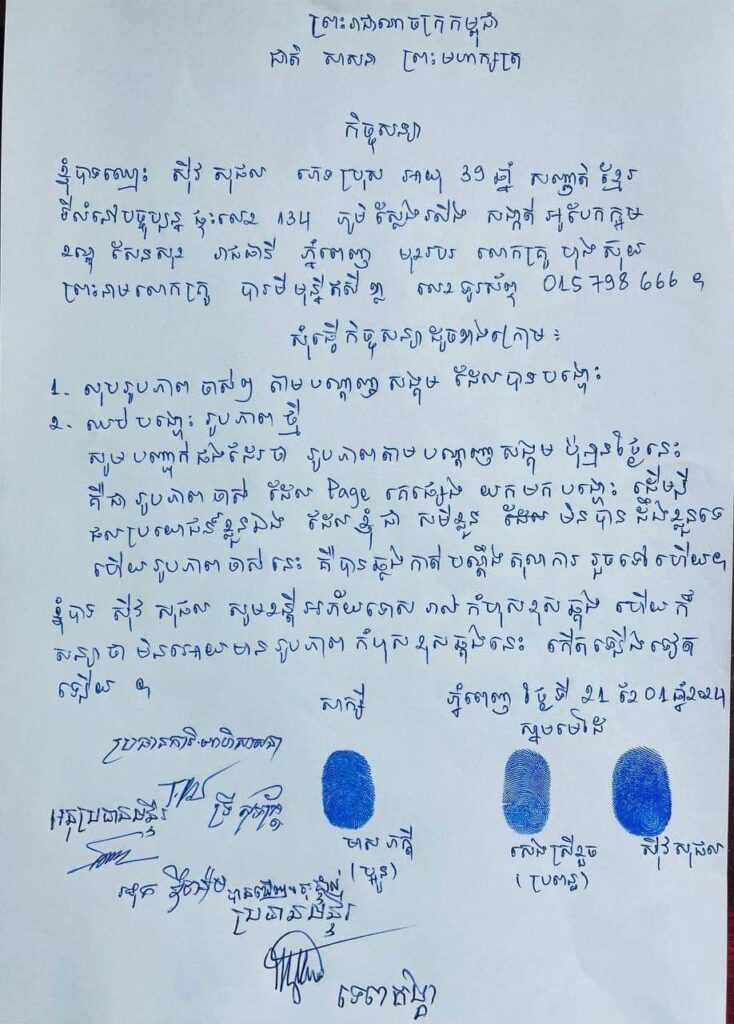 ព្រះរាជាណាចក្រកម្ពុជា
ជាតិ សាសនា ព្រះមហាក្សត្រ
កិច្ចសន្យា
ខ្ញុំបាទឈ្មោះ ស៊ីវ សុផល ភេទ ប្រុស អាយុ 39 ឆ្នាំ សញ្ជាតិ ខ្មែរ
ទីលំនៅបច្ចុប្បន្ន ផ្ទះលេខ 134 ភូមិ ស្លែងរលើង សង្កាត់ អូបែកក្អម
ខណ្ឌ សែនសុខ រាជធានី ភ្នំពេញ មុខរបរ លោកគ្រូ ហុងស៊ុយ
ព្រះនាមលោកគ្រូ បារមី មុន្នីឥសី ខ្លា លេខទូរស័ព្ទ 015 798 666 ។
សុំធ្វើ កិច្ចសន្យា ដូចខាងក្រោម ៖
1. លុបរូបភាព ចាស់ៗ តាមបណ្ដាញ សង្គម ដែលបាន បង្ហោះ
2. ឈប់ បង្ហោះ រូបភាព ថ្មី
សូម បញ្ជាក់ ផងដែរថា រូបភាពតាម បណ្ដាញ សង្គម ប៉ុន្មានថ្ងៃនេះ
គឺជា រូបភាព ចាស់ ដែល Page គេផ្សេង យកមក បង្ហោះ ដើម្បី
ផលប្រយោជន៍ខ្លួនឯង ដែលខ្ញុំជា សមីខ្លួន មិនបាន ដឹងខ្លួនទេ
ហើយរូបភាពចាស់នេះ គឺបានឆ្លងកាត់ បណ្ដឹង តុលាការ រួចទៅហើយ។
ខ្ញុំបាទ ស៊ីវ សុផល សូមខន្តី អភ័យទោស រាល់ កំហុសខុសឆ្គង ហើយ ក៏
សន្យាថា មិនអោយមាន រូបភាព កំហុសខុសឆ្គងនេះ កើតឡើងទៀត
ឡើយ ។
សាក្សី ភ្នំពេញ ថ្ងៃទី 21 ខែ 01 ឆ្នាំ 2024
ស្នាមមេដៃ
អនុប្រធានមន្ទីរ
មាស ភក្ដី សេង ស្រីតូច ស៊ីវ សុផល
(ប្អូន) (ប្រពន្ធ)
បានឃើញ
ប្រធានមន្ទីរ